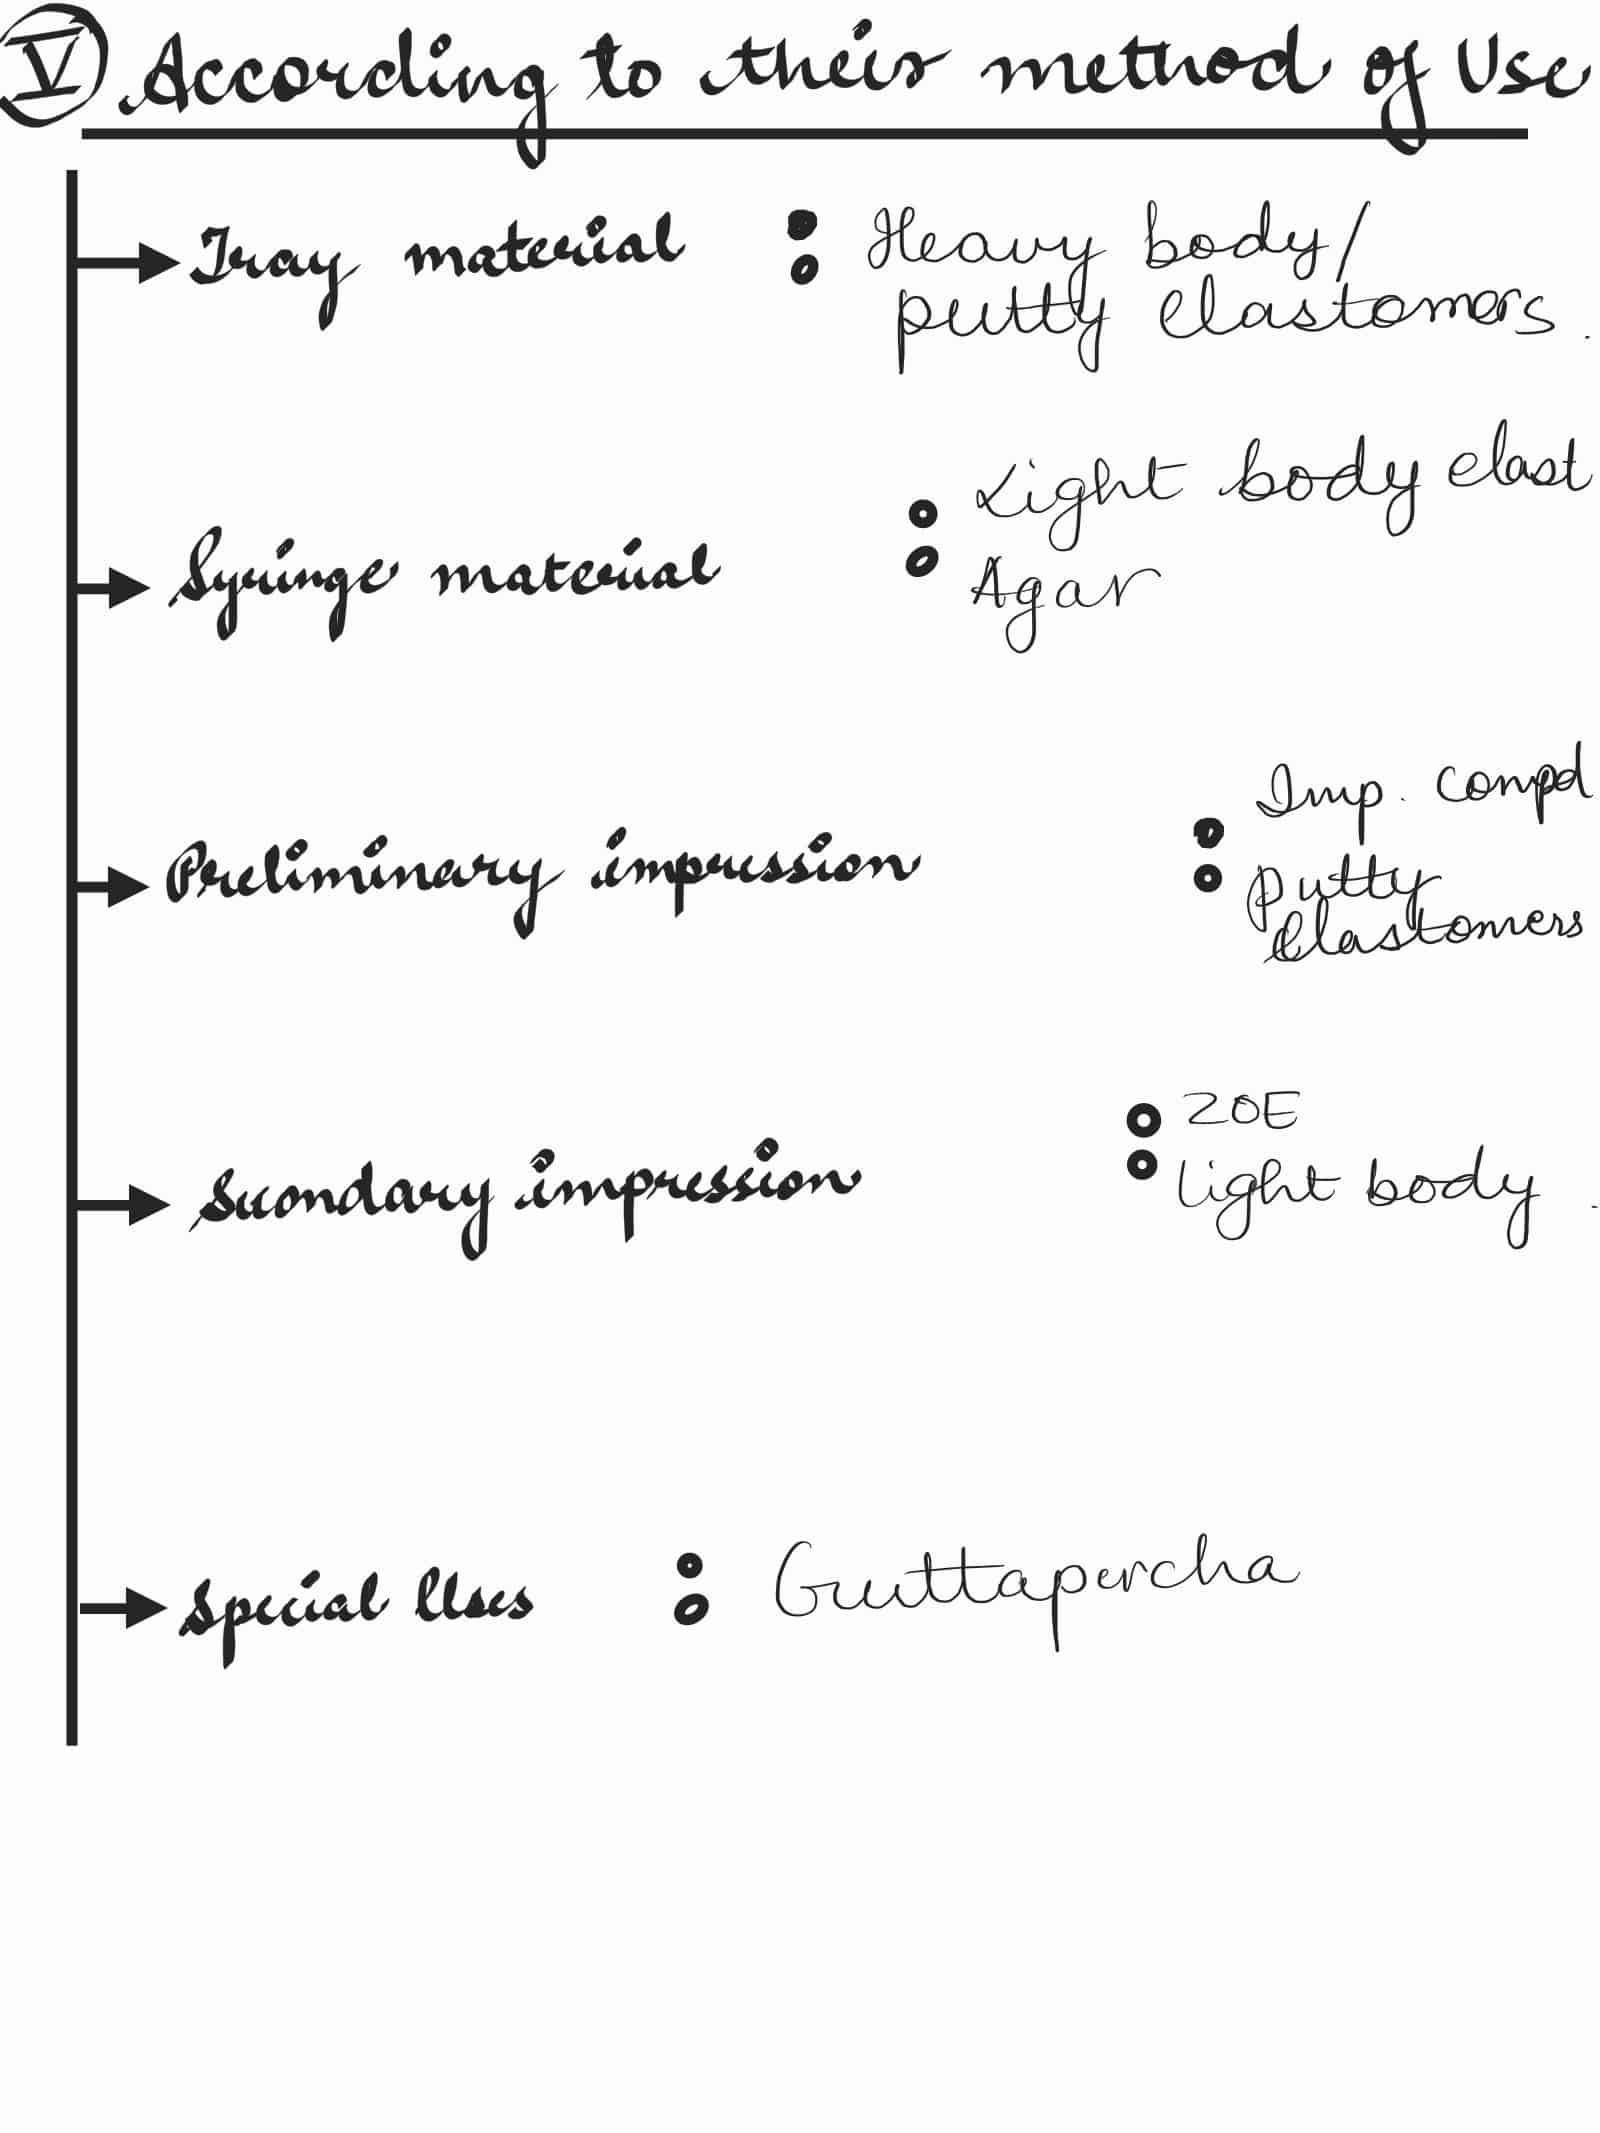 V According to their method of Use
Tray material : Heavy body/
putty elastomers.
Light body elast
Syringe material : Agar
Imp. Compd
Preliminary impression : putty
Elastomers
ZOE
Secondary impression : Light body.
Special Uses : Guttapercha